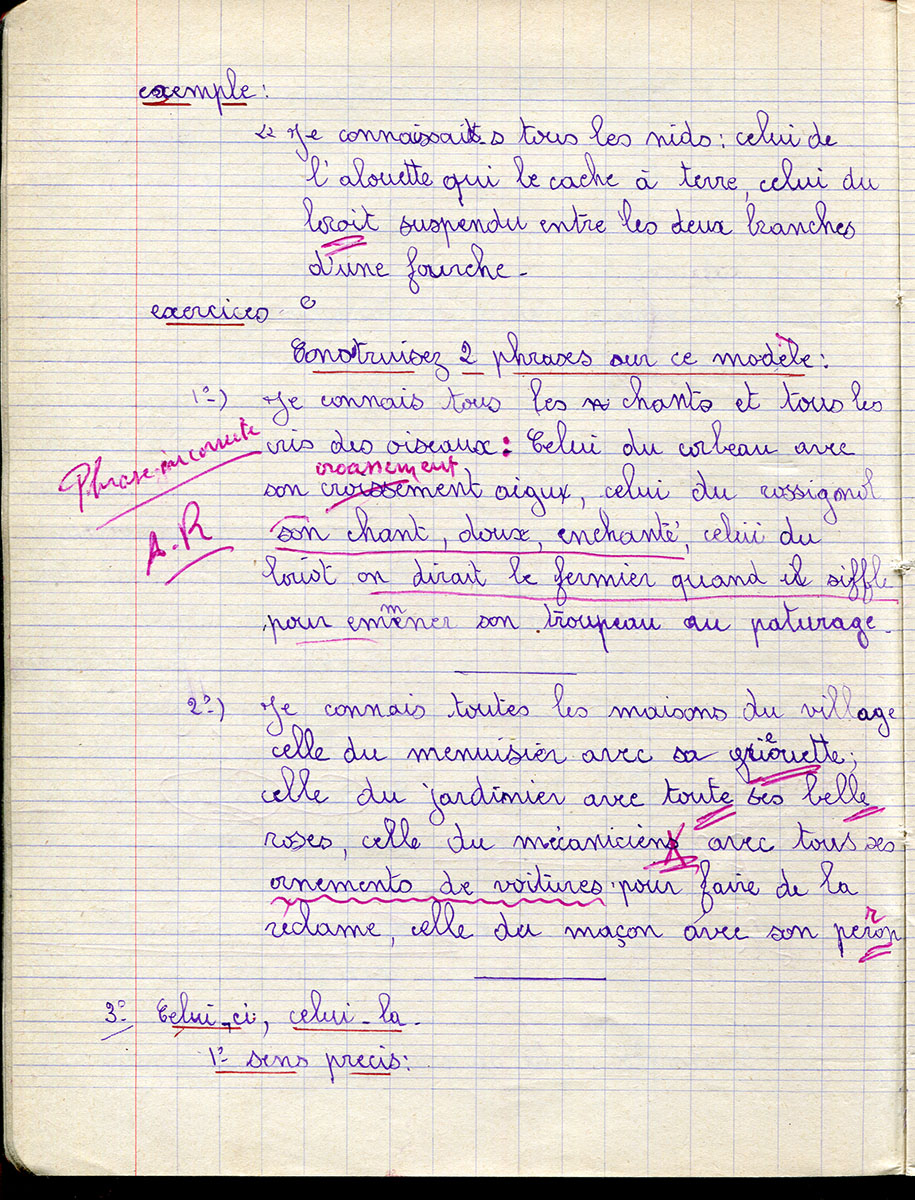 exemple :
" Je connaissais tous les nids : celui de
l'alouette qui le cache à terre, celui du
loroit suspendu entre les deux branches
d'une fourche -
exercices
Construisez 2 phrases sur ce modèle :
1º-) Je connais tous les chants et tous les
Phrase incorrecte cris des oiseaux : Celui du corbeau avec
croassement
son croissement aigux, celui du rossignol
A.R son chant, doux, enchanté, celui du
loriot on dirait le fermier quand il siffle
pour emmener son troupeau au paturage -
2º-) Je connais toutes les maisons du village
celle du menuisier avec sa ;
celle du jardinier avec toute ses belle
roses, celle du mécaniciens avec tous ses
ornements de voitures pour faire de la
réclame, celle du maçon avec son perron
3º Celui-ci, celui-la -
1º- sens precis :